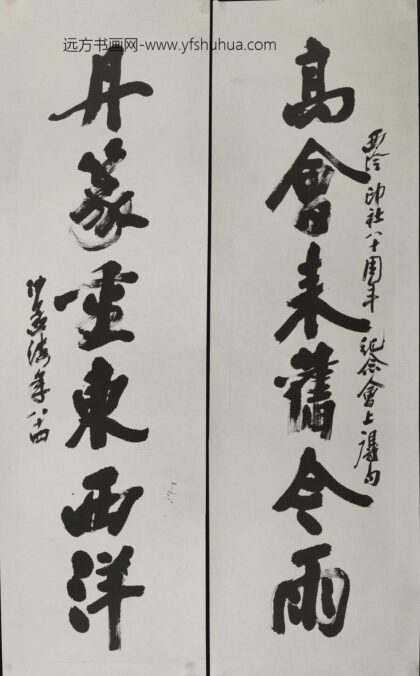 远方书画网-www.yfshuhua.com
高會来舊今雨
西泠印社八十周年紀念會上得句
丹篆重東西洋
沙孟海年八十四